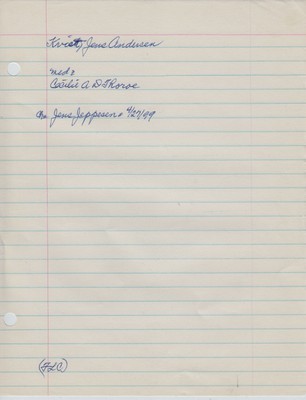 Kvist, Jens Andersen
med:
Cecilie A D Thoroe
Jens Jeppesen 4/27/99
(FLC)